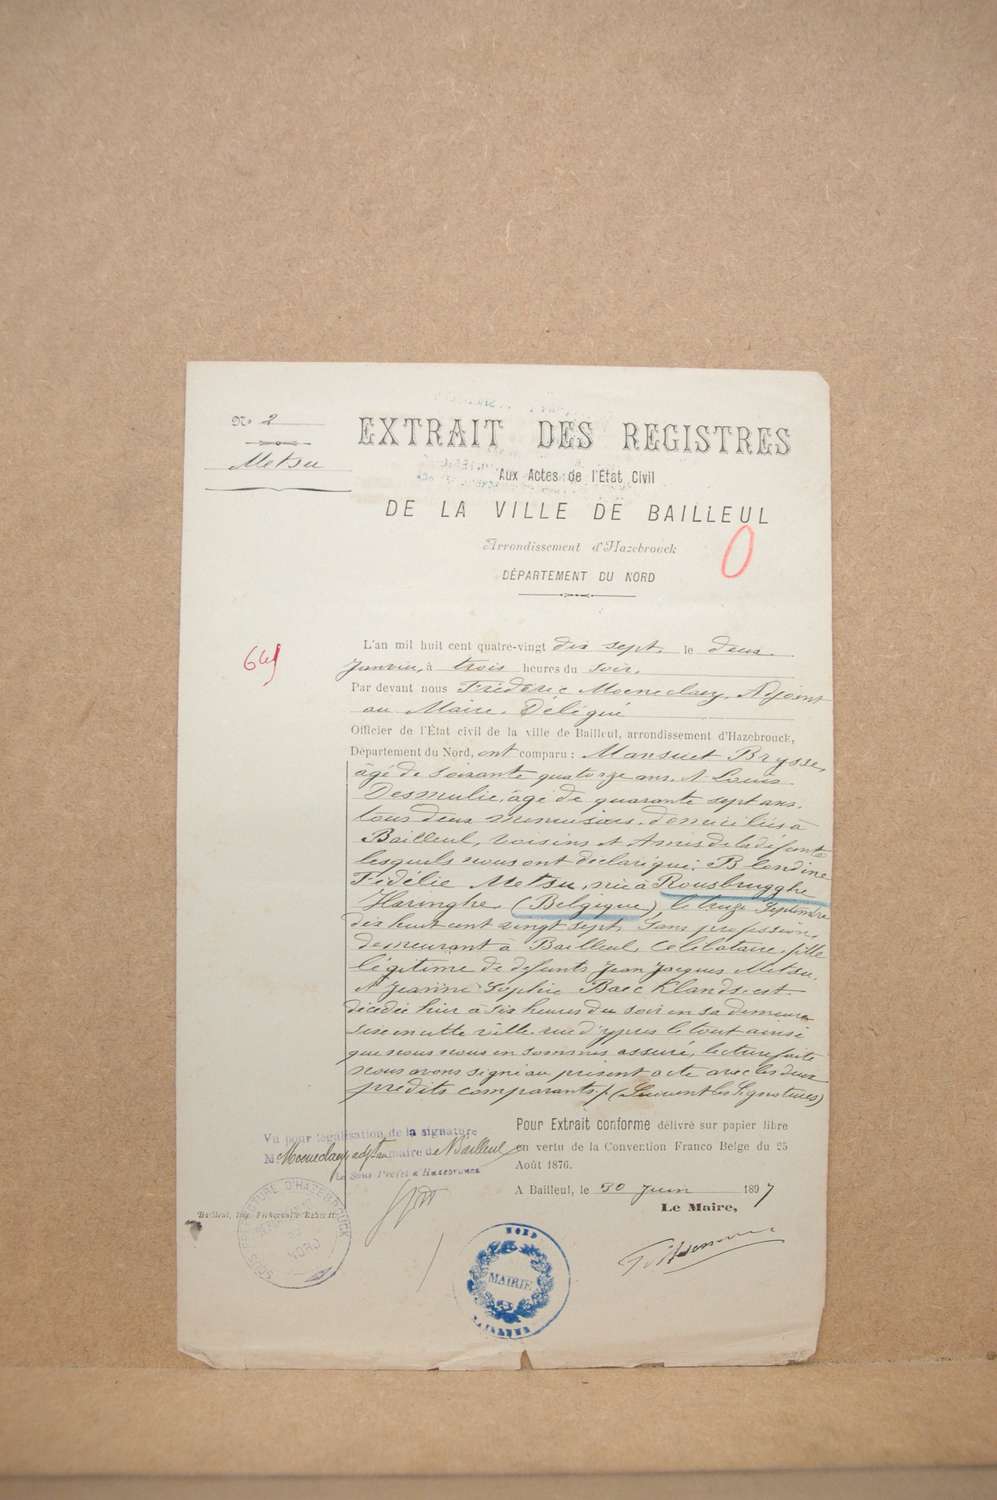 No 2
Metsu
EXTRAIT DES REGISTRES
Aux Actes de l'Etat Civil
DE LA VILLE DE BAILLEUL
Arrondissement d'Hazebrouck
DÉPARTEMENT DU NORD
L'an mil huit cent quatre-vingt dix sept, le deux
Janvier, à trois heures du soir,
Par devant nous Frédéric Moeneclaey, Adjoint
au Maire, Délégué
Officier de l'État civil de la ville de Bailleul, arrondissement d'Hazebrouck,
Département du Nord, ont comparu : Mansuet Brysse,
âgé de soixante quatorze ans, et Louis
Desmulie, âgé de quarante sept ans,
tous deux menuisiers, domiciliés à
Bailleul, voisins et Amis de la défunte
lesquels nous ont déclaré que: Blendine
Fidélie Metsu, née à Rousbrugghe
Haringhe (Belgique), le treize Septembre
dix huit cent vingt sept, Sans profession,
demeurant à Bailleul, Célibataire, fille
légitime de défunts Jean Jacques Metsu,
et Jeanne Sophie Baecklandt, est
décédée hier à six heures du soir en sa demeure
sise en cette ville, rue d'ypres le tout ainsi
que nous nous en sommes assuré, lecture faite
nous avons signé au présent acte avec les deux
prédits comparants/. (Suivent les Signatures)
Pour Extrait conforme délivré sur papier libre
en vertu de la Convention Franco Belge du 25
Août 1876.
A Bailleul, le 30 Juin 1897
Le Maire,
641
Vu pour légalisation de la signature
M Moeneclaey adjt au maire de Bailleul
Le Sous Préfet d'Hazebrouck
SOUS PRÉFECTURE D'HAZEBROUCK
NORD
NORD
MAIRIE
BAILLEUL